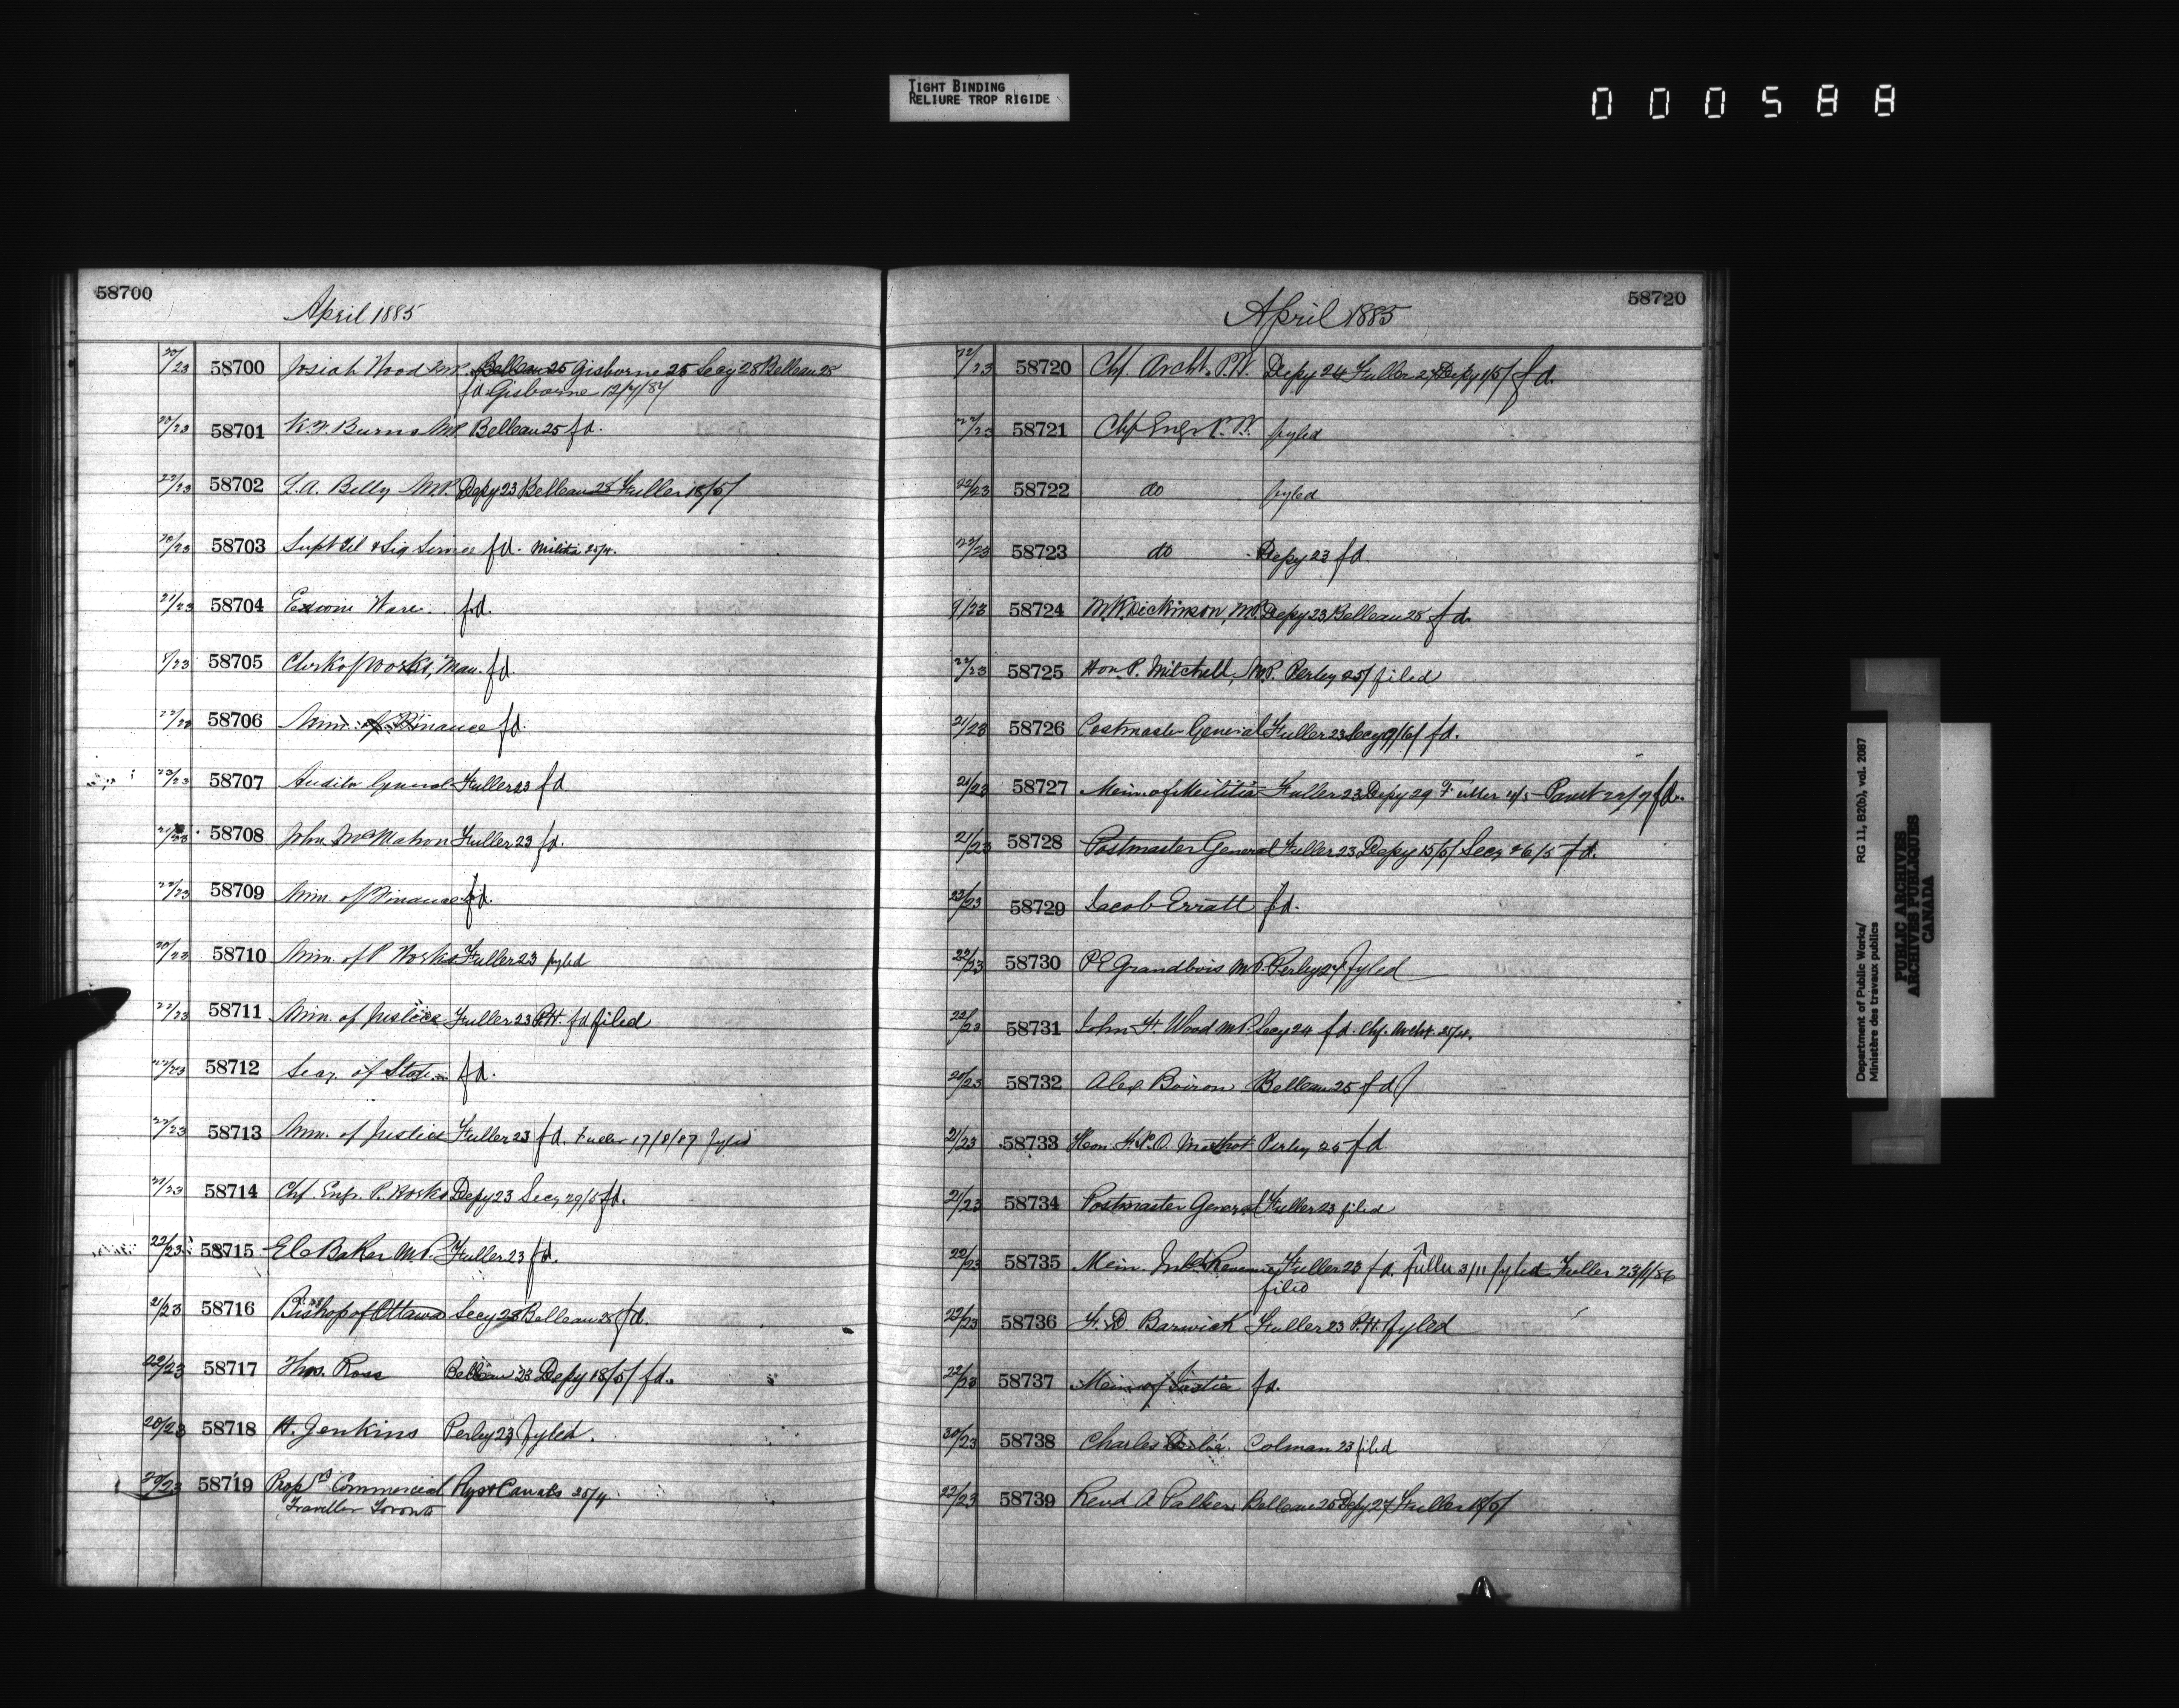 TIGHT BINDING
RELIURE TROP RIGIDE
000588
58700
April 1885
20/23 58700 Josiah Wood M.P. Belleau 25 Gisborne 25 Secy 28 Belleau 28
fd Gisborne 12/7/87
20/23 58701 K.F. Burns M.P. Belleau 25 fd.
22/23 58702 L.A. Billy M.P. Depy 23 Belleau 28 Fuller 18/5/
20/23 58703 Supt Tel & Sig Service fd. Militia 25/4.
21/23 58704 Edwin Ware fd.
9/23 58705 Clerk of Works, Man. fd.
22/23 58706 Min. of Finance fd.
23/23 58707 Auditor General Fuller 23 fd
21/23 58708 John McMahon Fuller 23 fd.
22/23 58709 Min. of Finance fd.
20/23 58710 Min. of P Works Fuller 23 fyled
22/23 58711 Min. of Justice Fuller 23 P.H. fd filed
22/23 58712 Secy. of State fd.
22/23 58713 Min. of Justice Fuller 23 fd. Fuller 17/8/87 fyled
21/23 58714 Chf. Engr. P. Works Depy 23 Secy 29/5 fd.
22/23 58715 E C Baker M.P. Fuller 23 fd.
21/23 58716 Bishop of Ottawa Secy 23 Belleau 28 fd.
22/23 58717 Thos. Ross Belleau 23 Depy 18/5/ fd.
20/23 58718 H. Jenkins Perley 23 fyled.
20/23 58719 Propr Commercial Rys & Canals 25/4
Traveller Toronto
58720
April 1885
22/23 58720 Chf. Archt. P.W. Depy 24 Fuller 27 Depy 1/5/ fd.
22/23 58721 Chf Engr P.W. fyled
22/23 58722 do fyled
22/23 58723 do Depy 23 fd.
9/23 58724 M.K. Dickinson, M.P. Depy 23 Belleau 28 fd.
22/23 58725 Hon. P. Mitchell, M.P. Perley 25/ filed
21/23 58726 Postmaster General Fuller 23 Secy 9/6/ fd.
21/23 58727 Min. of Militia Fuller 23 Depy 29 Fuller 4/5 Panet 22/7 fd.
21/23 58728 Postmaster General Fuller 23 Depy 15/5/ Secy 26/5 fd.
23/23 58729 Jacob Erratt fd.
22/23 58730 P E Grandbois M.P. Perley 27 fyled
22/23 58731 John F. Wood M.P. Secy 24 fd. Chf. Archt. 25/4.
20/23 58732 Alex Boiron Belleau 25 fd
21/23 58733 Hon. F.X.O. Methot Perley 25 fd
21/23 58734 Postmaster General Fuller 23 filed
22/23 58735 Min. Inld. Revenue Fuller 23 fd. Fuller 3/11 fyled Fuller 23/1/86
filed
22/23 58736 F. D. Barwick Fuller 23 P.H. fyled
22/23 58737 Min. of Justice fd.
20/23 58738 Charles Colman 23 filed
22/23 58739 Revd A Palker Belleau 25 Depy 27 Fuller 18/5/
Department of Public Works/ RG 11, B2(b), vol. 2087
Ministère des travaux publics
PUBLIC ARCHIVES
ARCHIVES PUBLIQUES
CANADA